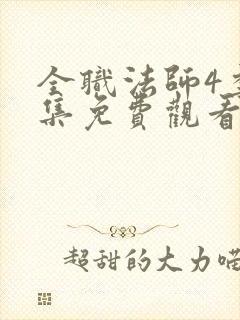 全職法師4
集免費觀看
超甜的大力喵